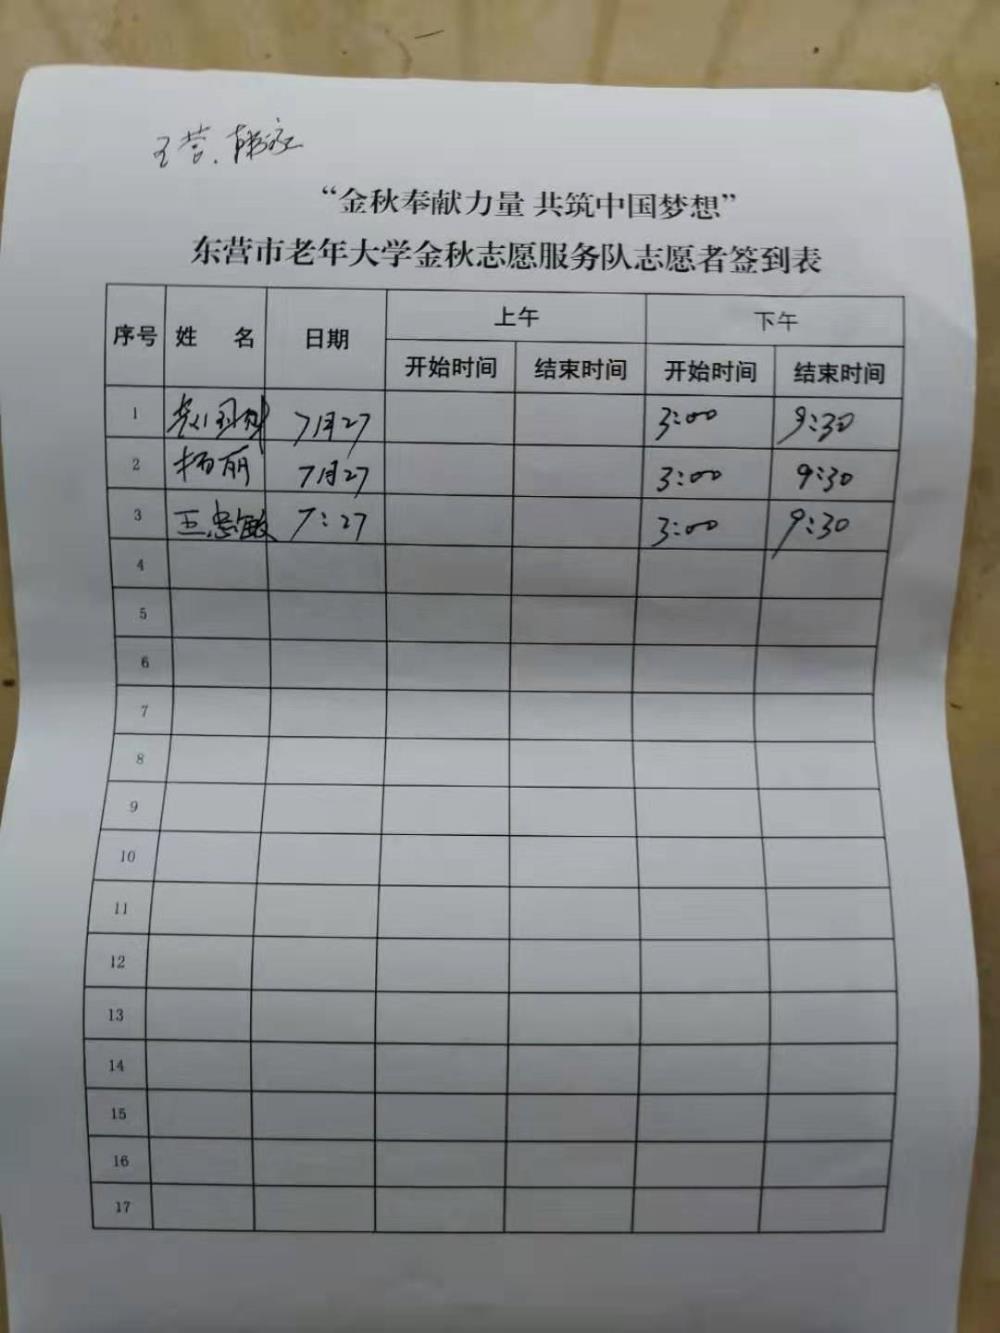 王营、韩
“金秋奉献力量 共筑中国梦想”
东营市老年大学金秋志愿服务队志愿者签到表
序号 姓 名 日期 上午 下午
开始时间 结束时间 开始时间 结束时间
1 7月27 3:00 9:30
2 杨丽 7月27 3:00 9:30
3 王忠敏 7:27 3:00 9:30
4
5
6
7
8
9
10
11
12
13
14
15
16
17